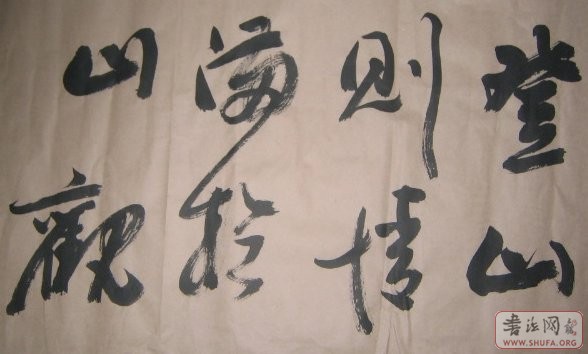 登山
則情
滿於
山觀
书法网
WWW.SHUFA.ORG